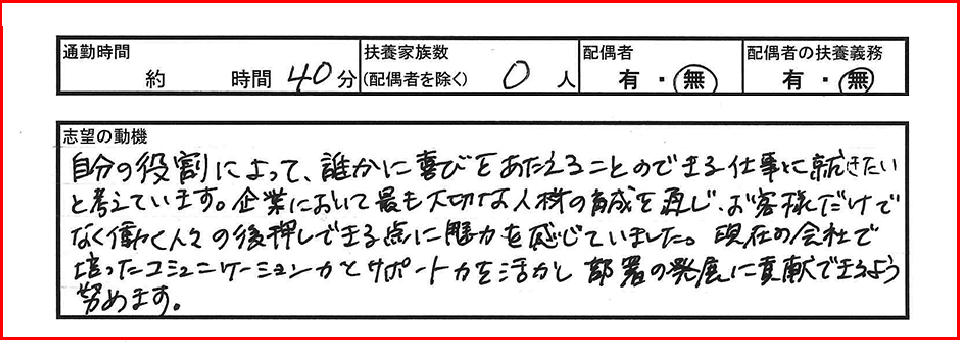 通勤時間 扶養家族数 配偶者 配偶者の扶養義務
約 時間 40分 (配偶者を除く) 0 人 有・無 有・無
志望の動機
自分の役割によって、誰かに喜びをあたえることのできる仕事に就きたい
と考えています。企業において最も大切な人材の育成を通じ、お客様だけで
なく働く人々の後押しできる点に魅力を感じていました。現在の会社で
培ったコミュニケーション力とサポート力を活かし部署の発展に貢献できるよう
努めます。